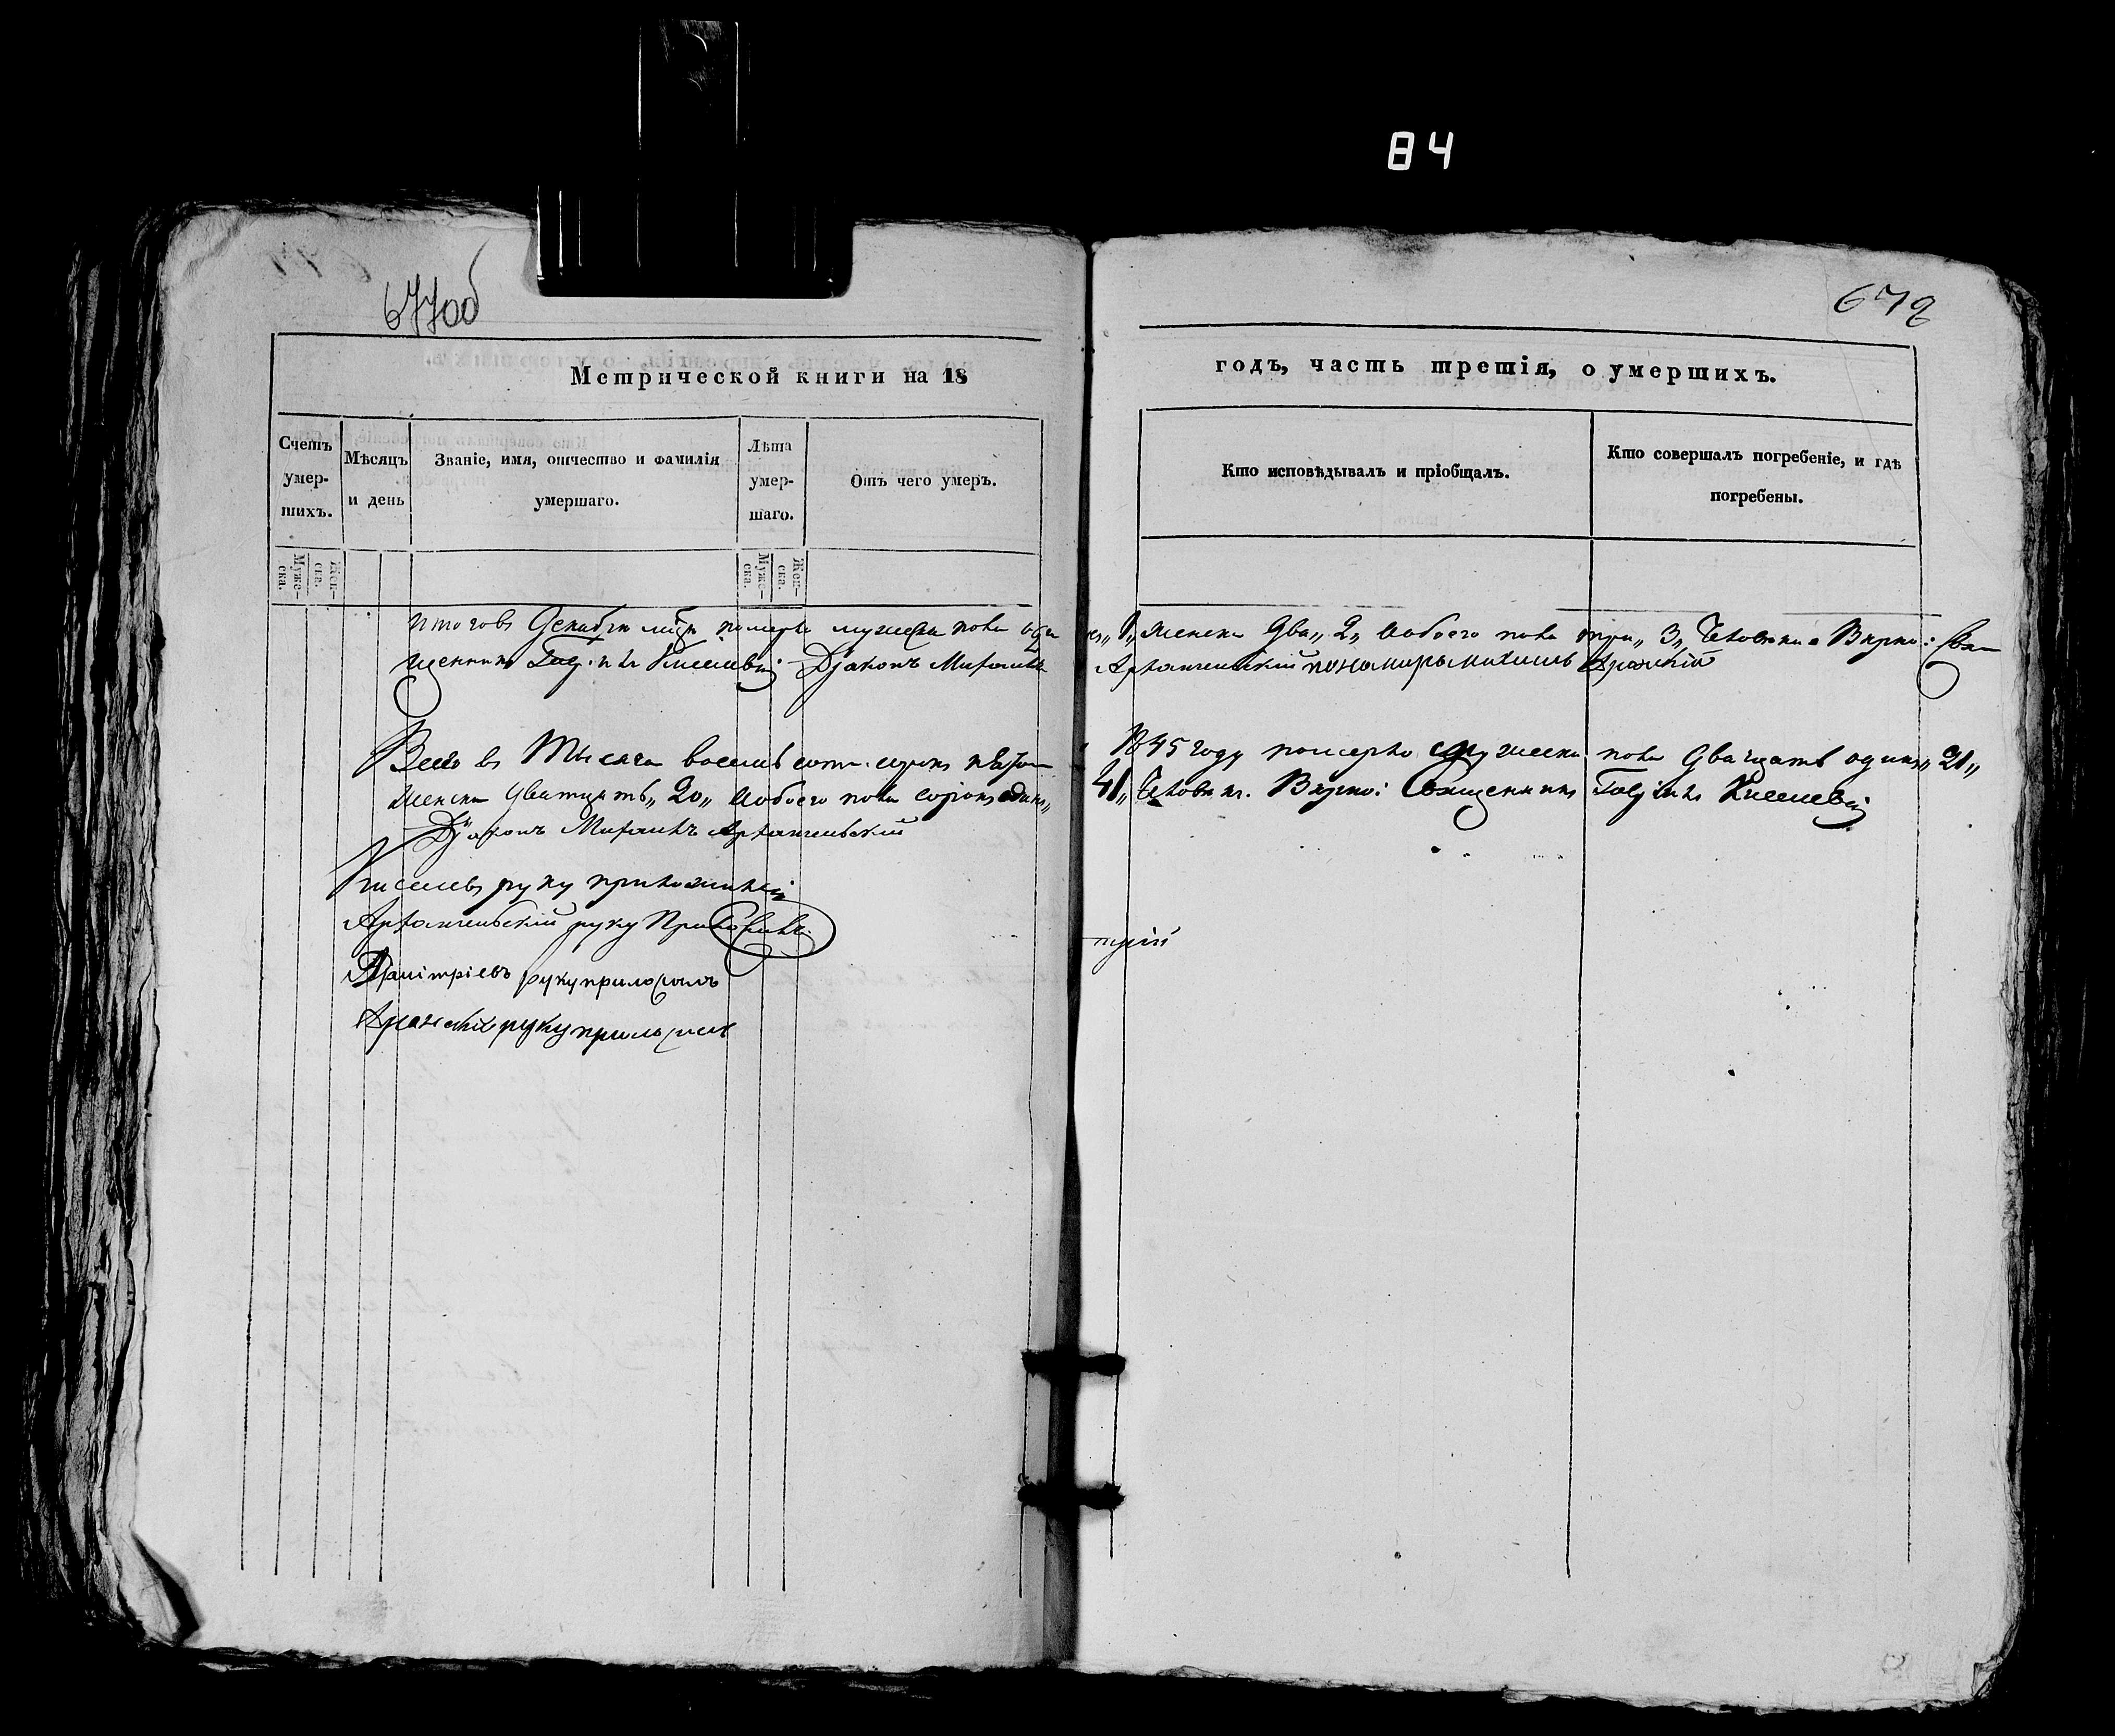 84
677об
678
Метрической книги на 18
годъ, часть третія, о умершихъ.
Счетъ умер-шихъ.
Мѣсяцъ и день
Званіе, имя, отчество и фамилія умершаго.
Лѣта умер-шаго.
Отъ чего умеръ.
Кто исповѣдывалъ и пріобщалъ.
Кто совершалъ погребеніе, и гдѣ погребены.
Муже-ска.
Жен-ска.
Муже-ска.
Жен-ска.
Итого въ Декабрѣ померло мужеска пола 1, женска два, 2, а обоего пола три, 3, человѣка Вѣрно: Свя-
щенникъ Киселевъ Діаконъ Михаилъ Архангельскій пономарь
Всего въ тысяча восемь сотъ сорокъ пятом 1845 году померло мужеска пола двадцать одинъ, 21,
женска двадцать, 20, а обоего пола сорокъ одинъ, 41, человѣкъ. Вѣрно: Священникъ Киселевъ
Діаконъ Михаилъ Архангельскій
Киселевъ руку приложилъ
Архангельскій руку приложилъ
руку приложилъ
руку приложилъ